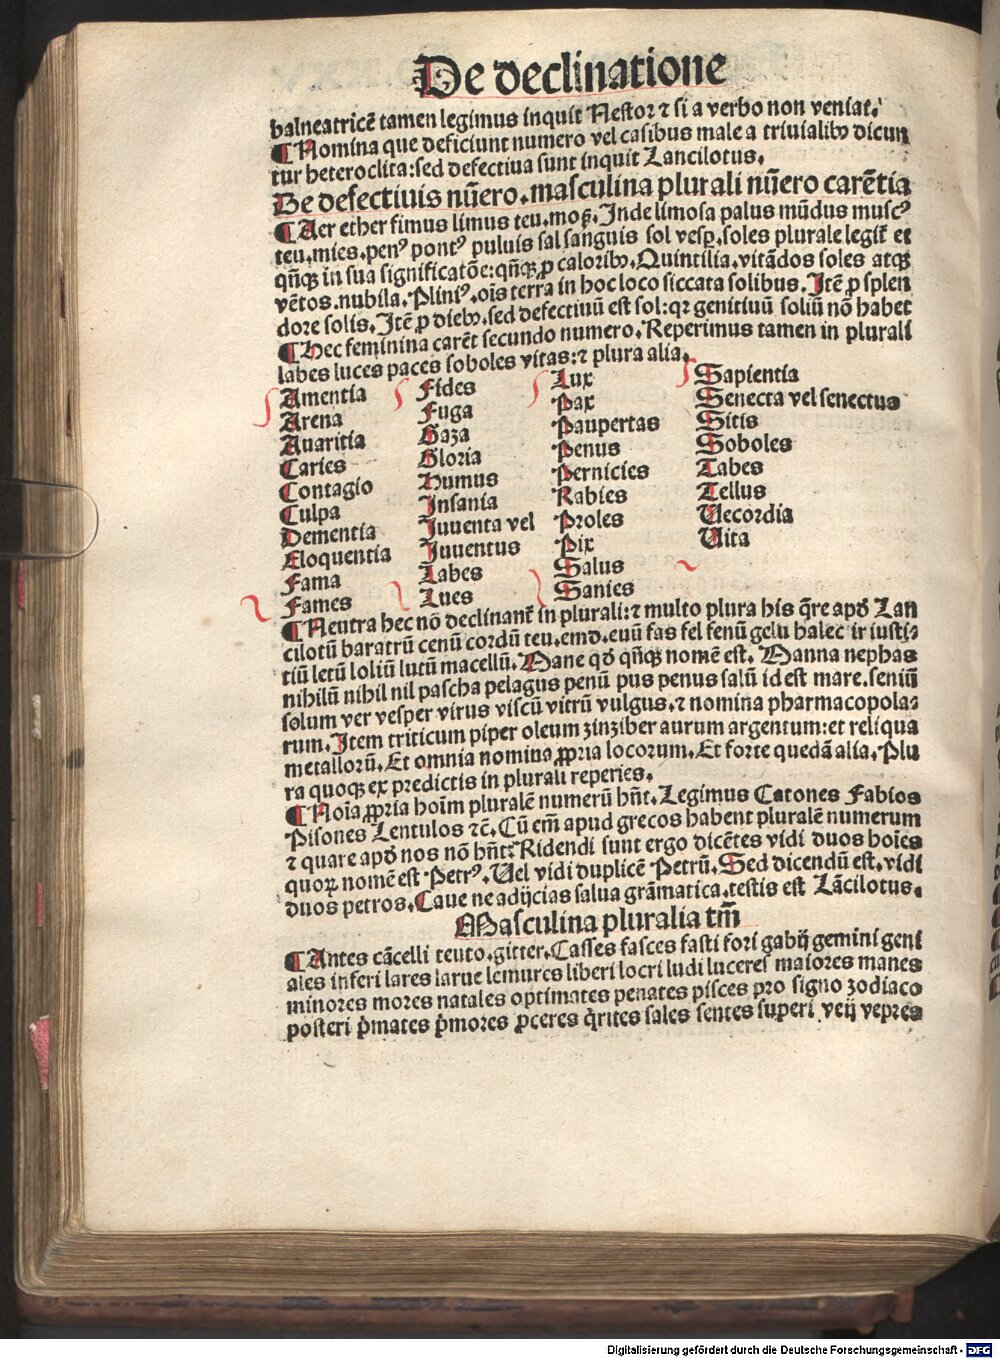 De declinatione
balneatricē tamen legimus inquit Nestor ⁊ si a verbo non veniat.
¶ Nomina que deficiunt numero vel casibus male a triuialibꝰ dicun
tur heteroclita: sed defectiua sunt inquit Lancilotus.
De defectiuis nūero. masculina plurali nūero carētia
¶ Aer ether fimus limus teu. moꝫ. Inde limosa palus mūdus muscꝰ
teu. mies. penꝰ pontꝰ puluis sal sanguis sol vesꝑ. soles plurale legiť et
qñqꝫ in sua significatōe: qñqꝫ ꝓ caloribꝰ. Quintilia. vitādos soles atqꝫ
vētos. nubila. Pliniꝰ. oīs terra in hoc loco siccata solibus. Itē ꝓ splen
dore solis. Itē ꝓ diebꝰ. sed defectiuū est sol: qꝛ genitiuū soliū nō habet
¶ Hec feminina carēt secundo numero. Reperimus tamen in plurali
labes luces paces soboles vitas: ⁊ plura alia.
Amentia
Arena
Auaritia
Caries
Contagio
Culpa
Dementia
Eloquentia
Fama
Fames
Fides
Fuga
Gaza
Gloria
Humus
Insania
Juuenta vel
Juuentus
Labes
Lues
Lux
Pax
Paupertas
Penus
Pernicies
Rabies
Proles
Pix
Salus
Sanies
Sapientia
Senecta vel senectus
Sitis
Soboles
Tabes
Tellus
Uecordia
Uita
¶ Neutra hec nō declinanť in plurali: ⁊ multo plura his q̄re apđ Lan
cilotū baratrū cenū cordū teu. emd. euū fas fel fenū gelu halec ir iusti
tiū letū loliū lutū macellū. Mane qđ qñqꝫ nomē est. Manna nephas
nihilū nihil nil pascha pelagus penū pus penus salū id est mare. seniū
solum ver vesper virus viscū vitrū vulgus. ⁊ nomina pharmacopola⸗
rum. Item triticum piper oleum zinziber aurum argentum: et reliqua
metallorū. Et omnia nomina ꝓpria locorum. Et forte quedā alia. Plu
ra quoqꝫ ex predictis in plurali reperies.
¶ Noīa ꝓpria hoīm pluralē numerū hñt. Legimus Catones Fabios
Pisones Lentulos ⁊c̄. Cū em̄ apud grecos habent pluralē numerum
⁊ quare apđ nos nō hñt: Ridendi sunt ergo dicētes vidi duos hoīes
quoꝝ nomē est Petrꝰ. Uel vidi duplicē Petrū. Sed dicendū est. vidi
duos petros. Caue ne adijcias salua grāmatica. testis est Lācilotus.
Masculina pluralia tm̄
¶ Antes cācelli teuto. gitter. Casses fasces fasti fori gabij gemini geni
ales inferi lares larue lemures liberi locri ludi luceres maiores manes
minores mores natales optimates penates pisces pro signo zodiaco
posteri p̄mates p̄mores ꝓceres q̄rites sales sentes superi veij vepres
Digitalisierung gefördert durch die Deutsche Forschungsgemeinschaft - DFG